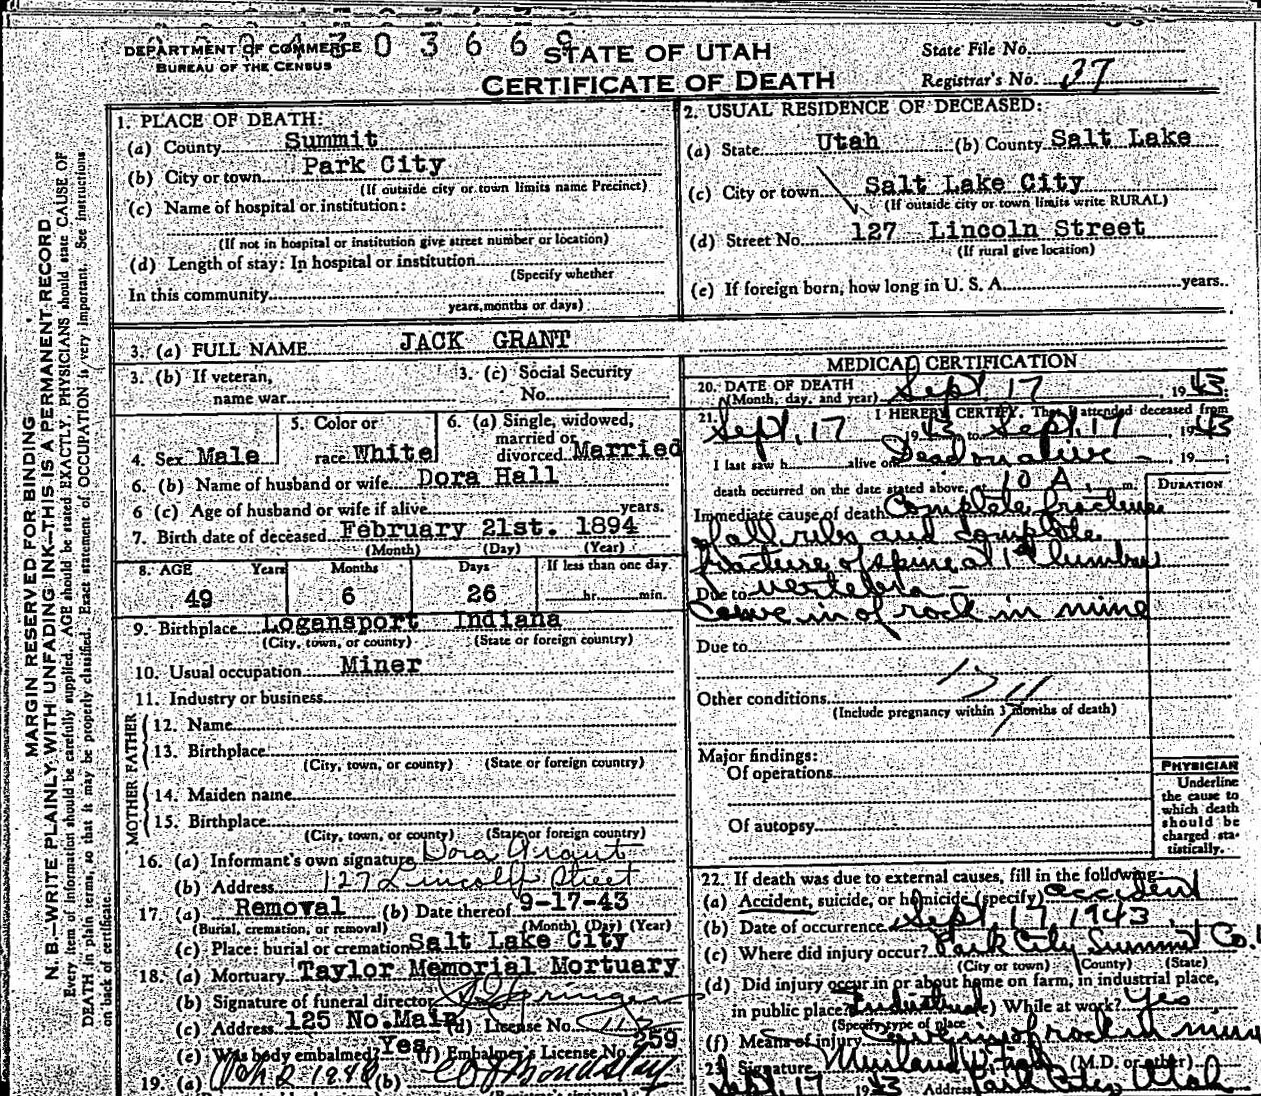 0 0 0 4 3 0 3 6 6 9
DEPARTMENT OF COMMERCE
BUREAU OF THE CENSUS
STATE OF UTAH
CERTIFICATE OF DEATH
State File No.
Registrar's No. 27
MARGIN RESERVED FOR BINDING
N. B.—WRITE PLAINLY, WITH UNFADING INK—THIS IS A PERMANENT RECORD
Every item of information should be carefully supplied. AGE should be stated EXACTLY. PHYSICIANS should state CAUSE OF
DEATH in plain terms, so that it may be properly classified. Exact statement of OCCUPATION is very important. See instructions
on back of certificate.
1. PLACE OF DEATH:
(a) County Summit
(b) City or town Park City
(If outside city or town limits name Precinct)
(c) Name of hospital or institution:
(If not in hospital or institution give street number or location)
(d) Length of stay: In hospital or institution
(Specify whether
In this community
years, months or days)
2. USUAL RESIDENCE OF DECEASED:
(a) State Utah (b) County Salt Lake
(c) City or town Salt Lake City
(If outside city or town limits write RURAL)
(d) Street No. 127 Lincoln Street
(If rural give location)
(e) If foreign born, how long in U. S. A. years.
3. (a) FULL NAME JACK GRANT
3. (b) If veteran,
name war
3. (c) Social Security
No.
4. Sex Male
5. Color or
race White
6. (a) Single, widowed,
married or
divorced Married
6. (b) Name of husband or wife Dora Hall
6 (c) Age of husband or wife if alive years.
7. Birth date of deceased February 21st. 1894
(Month) (Day) (Year)
8. AGE Years Months Days If less than one day
49 6 26 hr. min.
9. Birthplace Logansport Indiana
(City, town, or county) (State or foreign country)
10. Usual occupation Miner
11. Industry or business
FATHER
12. Name
13. Birthplace
(City, town, or county) (State or foreign country)
MOTHER
14. Maiden name
15. Birthplace
(City, town, or county) (State or foreign country)
16. (a) Informant's own signature Dora Grant
(b) Address 127 Lincoln Street
17 (a) Removal (b) Date thereof 9-17-43
(Burial, cremation, or removal) (Month) (Day) (Year)
(c) Place: burial or cremation Salt Lake City
18. (a) Mortuary Taylor Memorial Mortuary
(b) Signature of funeral director
(c) Address 125 No.Main (d) License No.
(e) Was body embalmed? Yes (f) Embalmer's License No. 259
19. (a) (b)
MEDICAL CERTIFICATION
20. DATE OF DEATH
(Month, day, and year) Sept. 17, 1943
21. I HEREBY CERTIFY, That I attended deceased from
Sept. 17 1943 to Sept. 17, 1943
I last saw h alive on Dead on alive — 19
death occurred on the date stated above, at 10 A. m.
DURATION
Immediate cause of death Complete fracture
of all ribs and complete
fracture of spine at 1st lumbar
Due to vertebra —
Cave in of rock in mine
Due to
Other conditions
(Include pregnancy within 3 months of death)
Major findings:
Of operations
Of autopsy
PHYSICIAN
Underline
the cause to
which death
should be
charged sta-
tistically.
22. If death was due to external causes, fill in the following:
(a) Accident, suicide, or homicide (specify) accident
(b) Date of occurrence Sept. 17 1943
(c) Where did injury occur? Park City Summit Co.
(City or town) (County) (State)
(d) Did injury occur in or about home on farm, in industrial place,
in public place? Industrial (e) While at work? Yes
(Specify type of place
(f) Means of injury Cave in of rock in mine
23. Signature (M.D. or other)
Sept. 17 1943 Address Park City, Utah